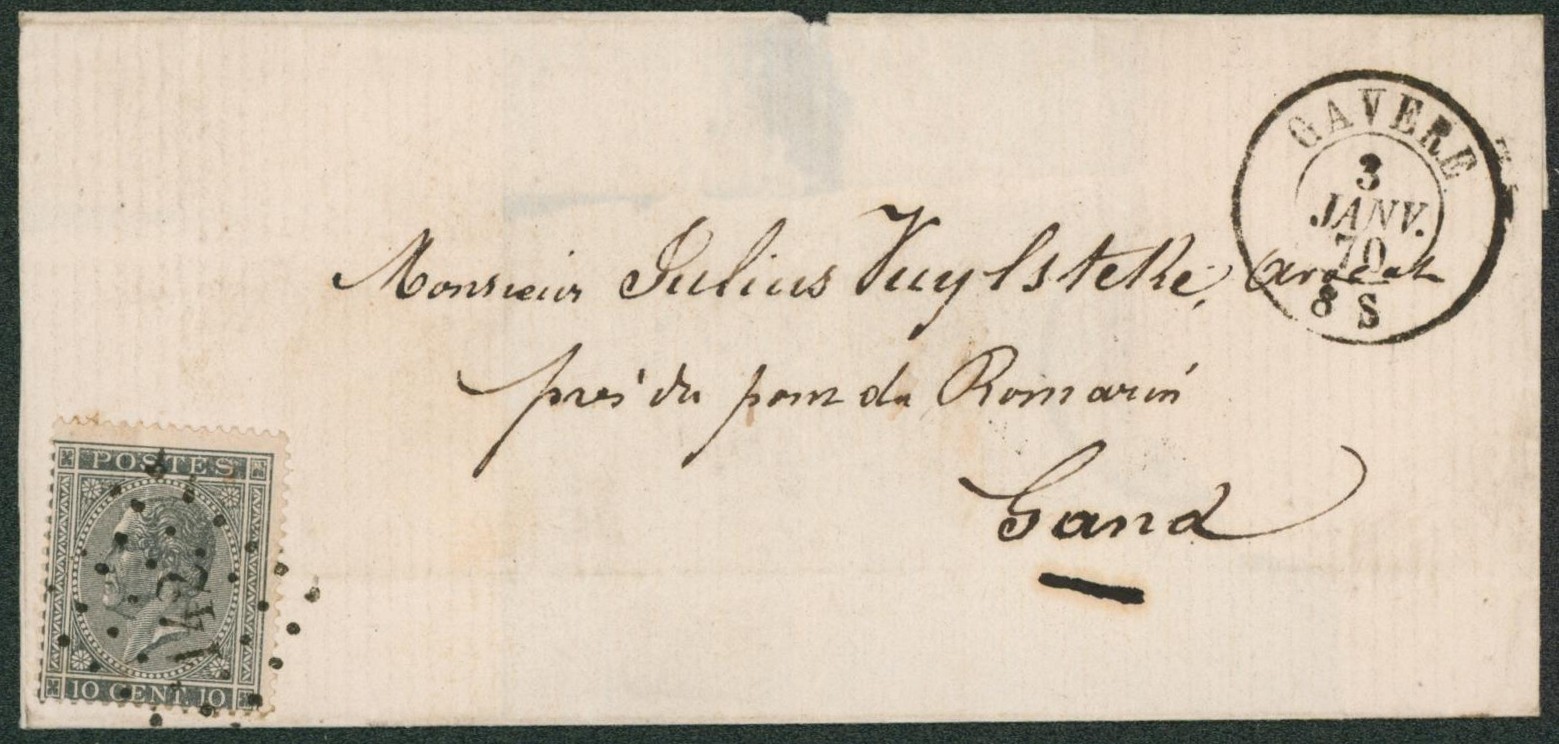 GAVERE
3
JANV.
70
8 S
Monsieur Julius Vuylsteke, avocat
près du pont du Romarin
Gand
POSTES
142
10 CENT. 10